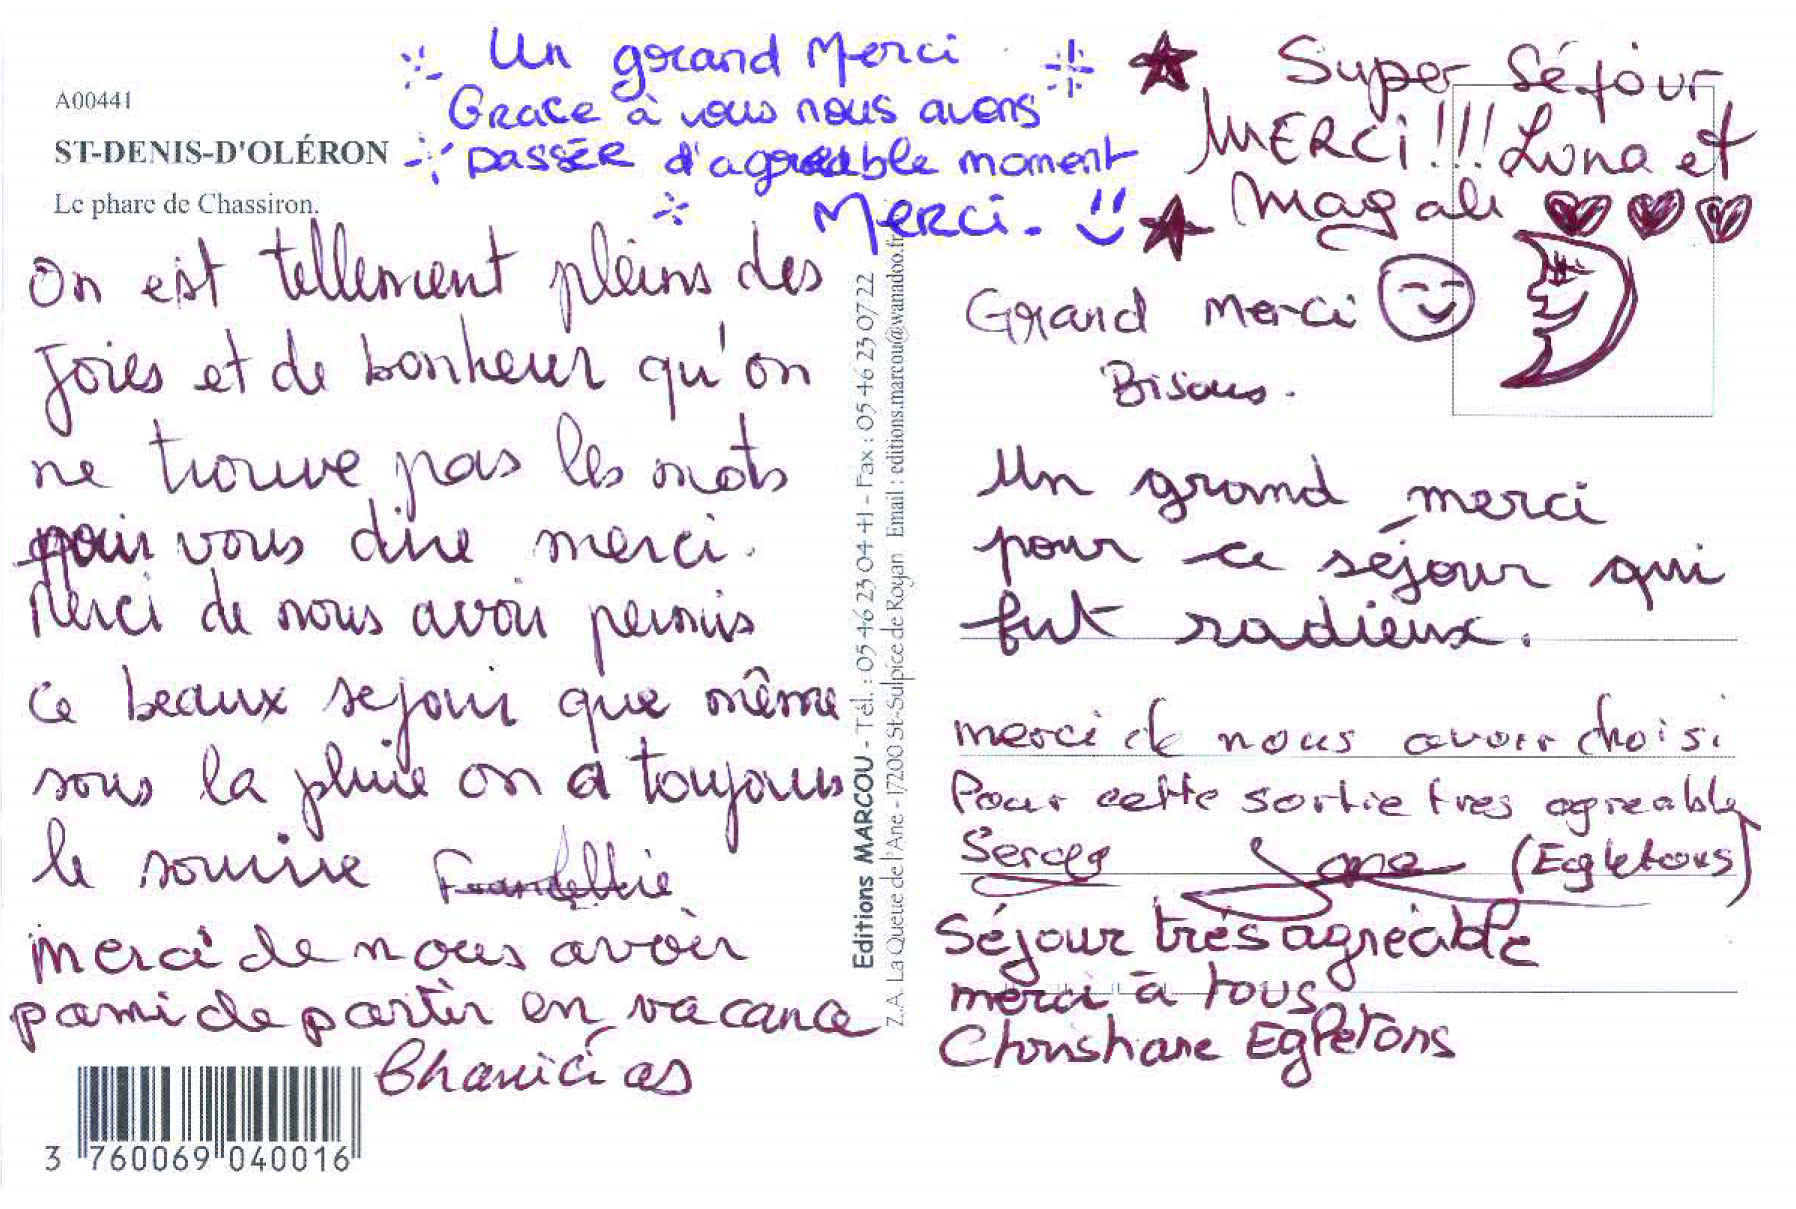 A00441
ST-DENIS-D'OLÉRON
Le phare de Chassiron.
Un grand Merci
Grace à vous nous avons
passér d'agréable moment
Merci.
Super Séjour
MERCi!!! Luna et
Magali
On est tellement pleins des
joies et de bonheur qu'on
ne trouve pas les mots
pour vous dire merci.
Merci de nous avoir permis
ce beaux sejour que même
sous la pluie on a toujours
le sourire
merci de nous avoir
pami de partir en vacance
Editions MARCOU - Tél. : 05 46 23 04 41 - Fax : 05 46 23 07 22
Z.A. La Queue de l'Ane - 17200 St-Sulpice de Royan Email : editions.marcou@wanadoo.fr
Grand Merci
Bisous.
Un grand merci
pour ce séjour qui
fut radieux.
merci de nous avoir choisi
Pour cette sortie tres agreable
(Egletons)
Séjour trés agréable
merci à tous
Christiane Egletons
3 760069 040016